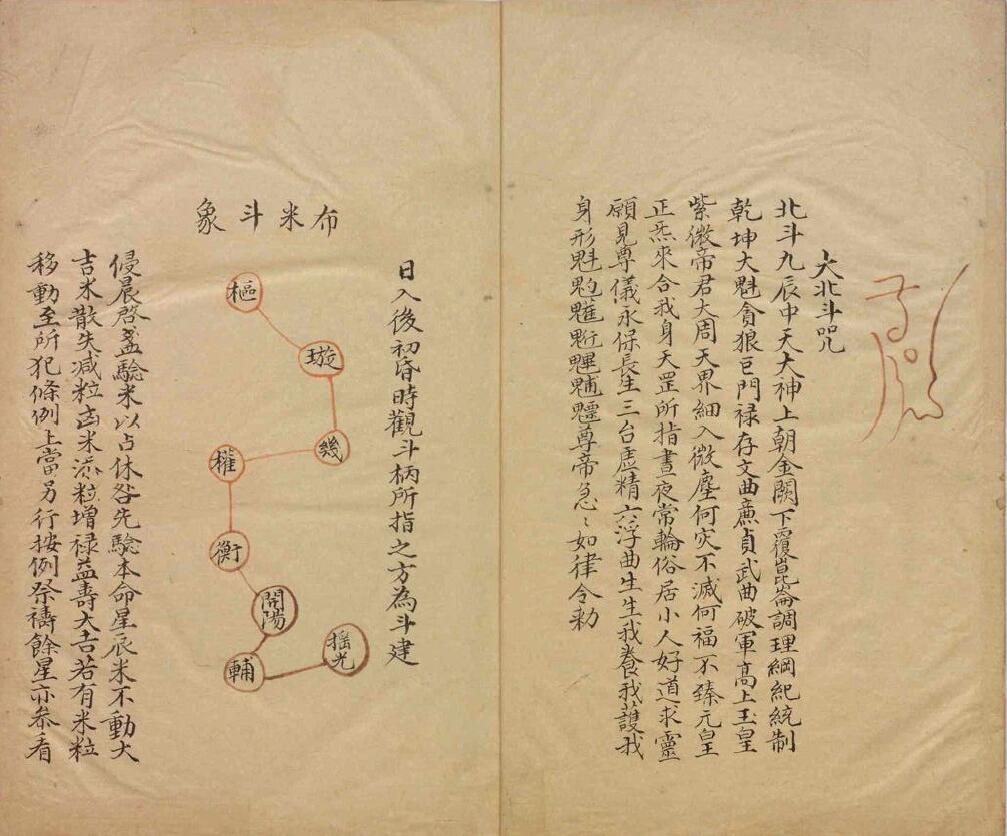 大北斗咒
北斗九辰中天大神上朝金闕下覆崑崙調理綱紀統制
乾坤大魁貪狼巨門禄存文曲廉貞武曲破軍高上玉皇
紫微帝君大周天界細入微塵何灾不滅何福不臻元皇
正炁來合我身天罡所指晝夜常輪俗居小人好道求靈
願見尊儀永保長生三台虚精六淳曲生生我養我護我
身形魁𩲃𩵄魓䰢魒尊帝急〻如律令勅
布米斗象
日入後初昏時觀斗柄所指之方為斗建
樞
璇
幾
權
衡
開陽
輔
揺光
侵晨啓盞驗米以占休咎先驗本命星辰米不動大
吉米散失減粒凶米添粒增禄益壽大吉若有米粒
移動至所犯條例上當另行按例祭禱餘星亦叅看